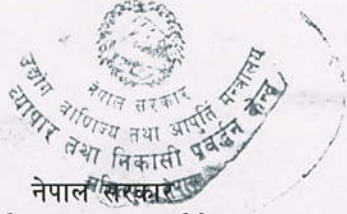 नेपाल सरकार
उद्योग वाणिज्य तथा आपूर्ति मन्त्रालय
व्यापार तथा निकासी प्रवर्द्धन केन्द्र
नेपाल सरकार